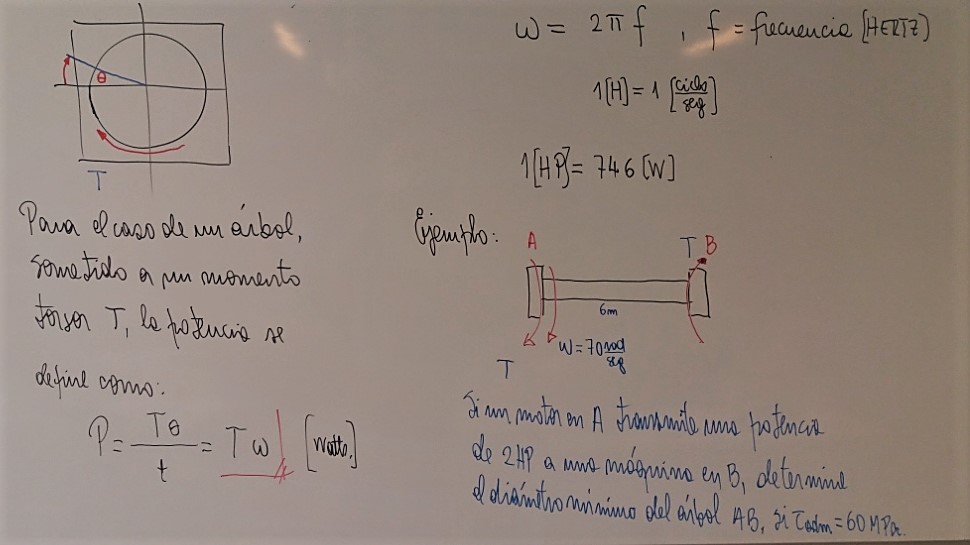 θ
T
Para el caso de un árbol,
sometido a un momento
torsor T, la potencia se
define como:
P = Tθ / t = Tω [watts.]
ω = 2πf , f = frecuencia [HERTZ]
1[H] = 1 [ciclo/seg]
1[HP] = 746 [W]
Ejemplo:
A
T B
6m
T
ω = 70 rad/seg
Si un motor en A transmite una potencia
de 2HP a una máquina en B, determine
el diámetro mínimo del árbol AB, si τadm = 60 MPa.